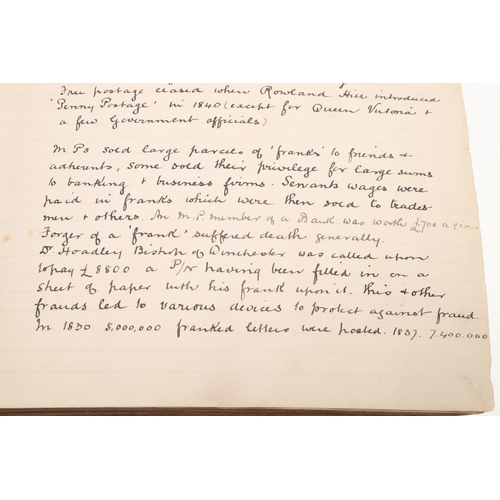 Free postage ceased when Rowland Hill introduced
'Penny Postage' in 1840 (except for Queen Victoria +
a few Government officials)
M.Ps sold large parcels of 'franks' to friends +
adherents, some sold their privilege for large sums
to banking + business firms. Servants wages were
paid in franks which were then sold to trades-
men + others. An M.P. member of a Bank was worth £700 a year
Forger of a 'frank' suffered death generally.
Dr Hoadley Bishop of Winchester was called upon
to pay £8800 a P/N having been filled in on a
sheet of paper with his frank upon it. This + other
frauds led to various devices to protect against fraud.
In 1830 5,000,000 franked letters were posted. 1837. 7.400.000